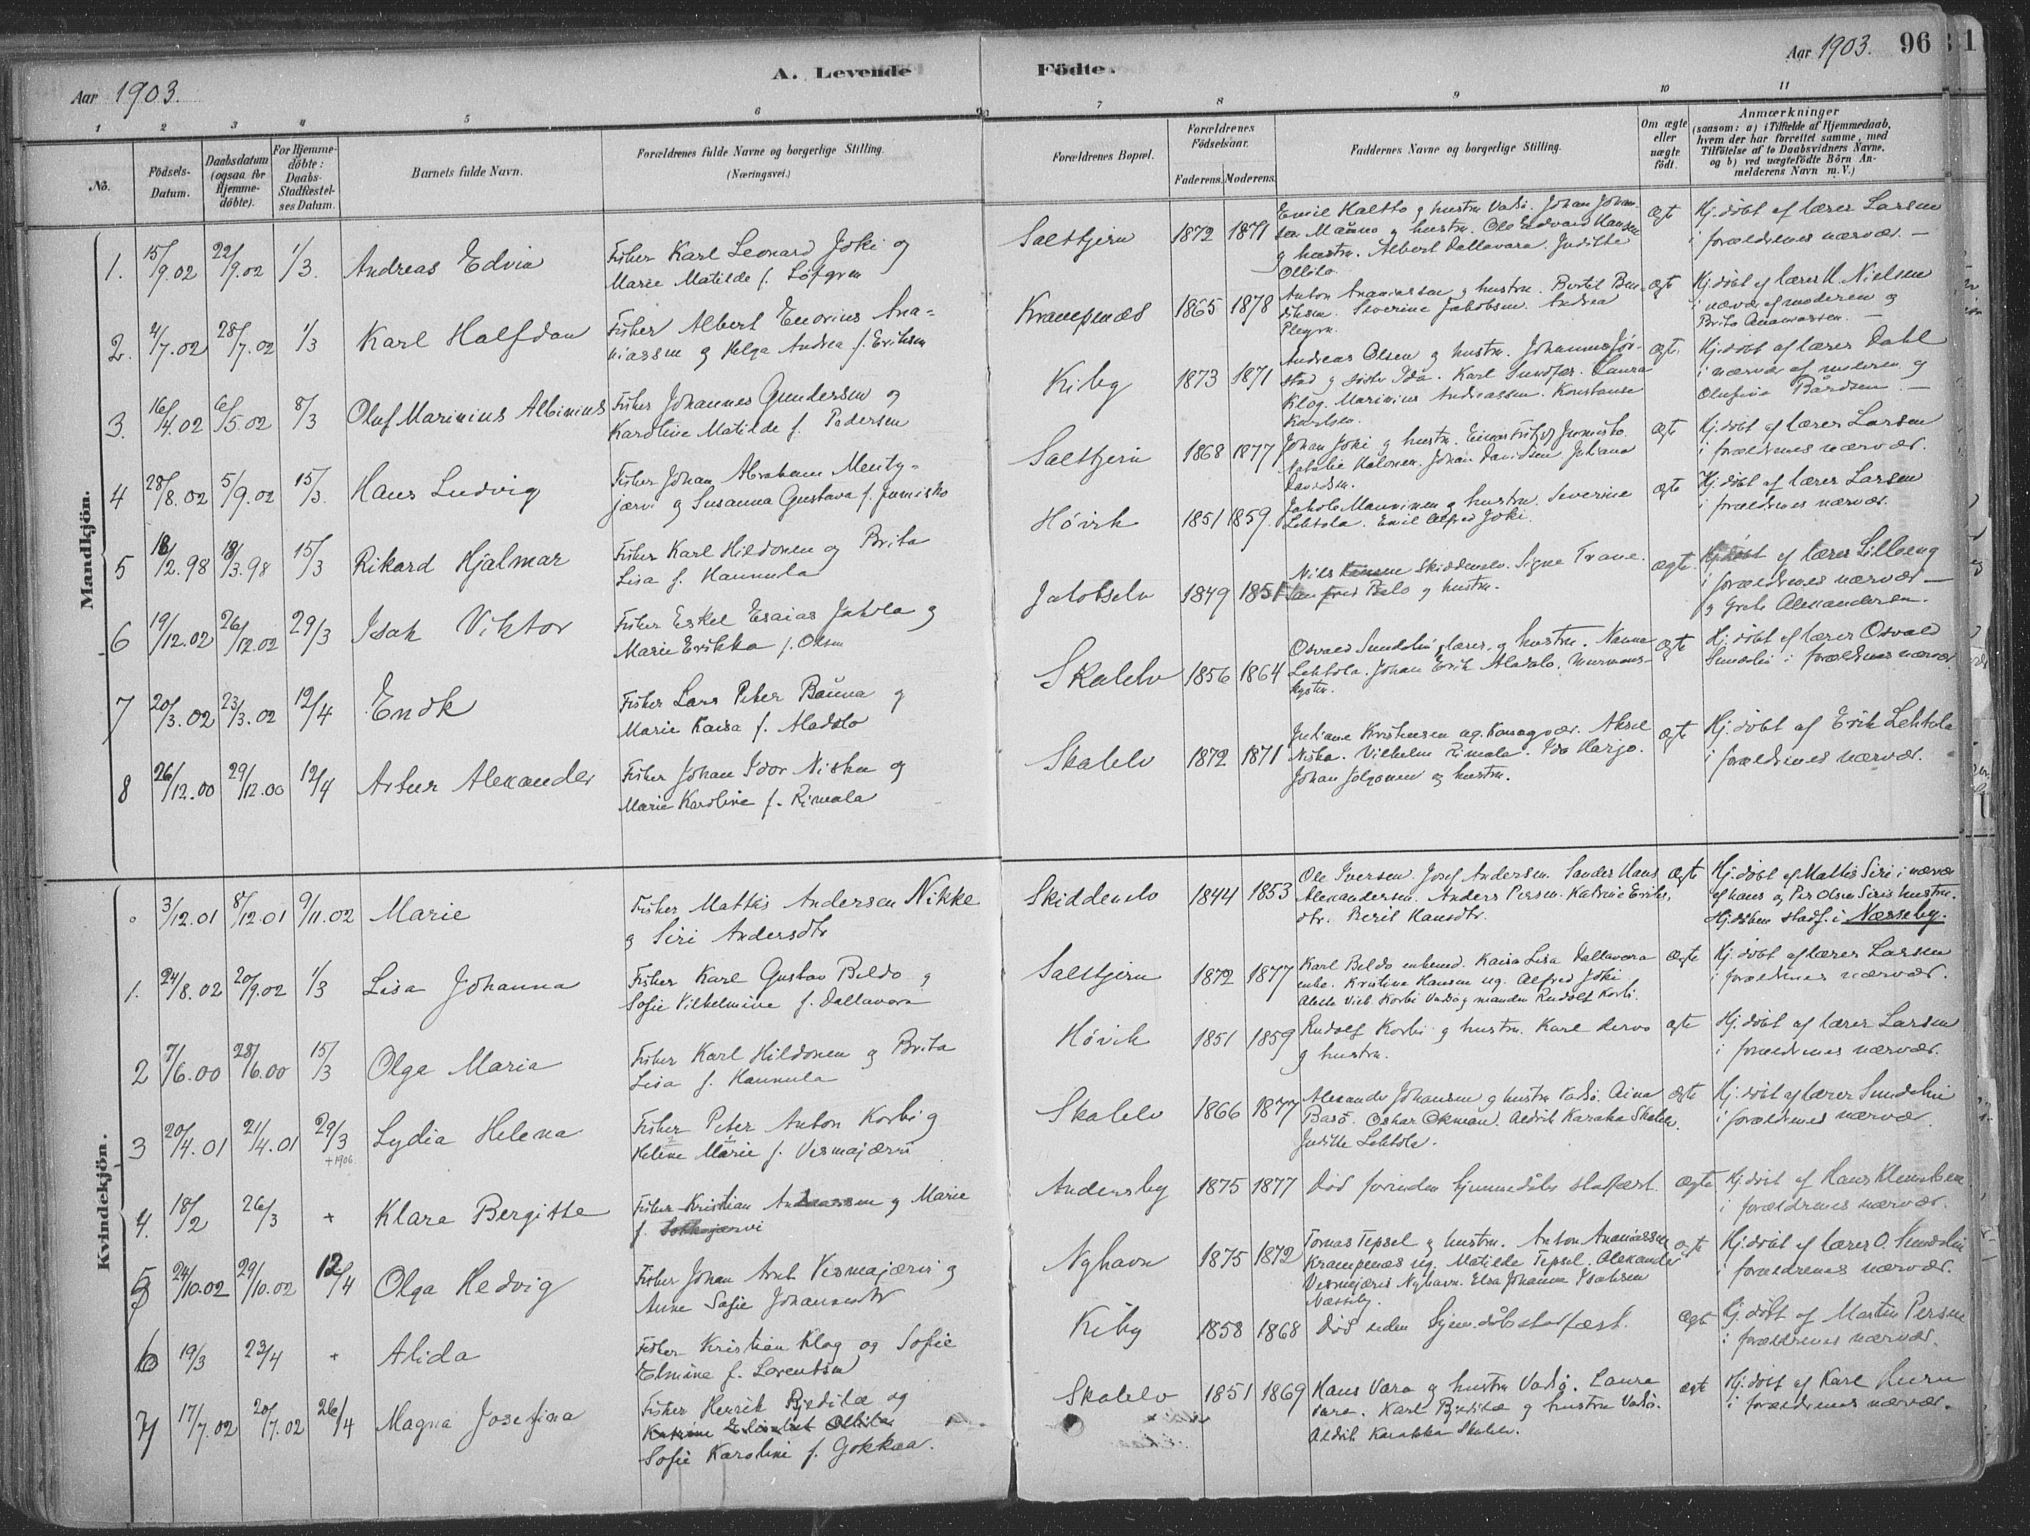 Aar 1903.
A. Levende
Födte.
Aar 1903. 96
1 2 3 4 5 6 7 8 9 10 11
No.
Födsels-
Datum.
Daabsdatum
(ogsaa for
Hjemme-
döbte).
For Hjemme-
döbte:
Daabs-
Stadfæstel-
ses Datum.
Barnets fulde Navn.
Forældrenes fulde Navne og borgerlige Stilling.
(Næringsvei.)
Forældrenes Bopæl.
Forældrenes
Födselsaar.
Faderens. Moderens.
Faddernes Navne og borgerlige Stilling.
Om ægte
eller
uægte
födt.
Anmærkninger
(saasom: a) i Tilfælde af Hjemmedaab,
hvem der har forrettet samme, med
Tilföielse af to Daabsvidners Navne,
og b) ved uægtefödte Börn An-
melderens Navn m. V.)
Mandkjön.
1. 15/9.02 22/9.02 1/3. Andreas Edvin
Fisker Karl Leonard Joki og
Marie Matilde f. Löfgren
Saltbjern 1872 1871
Emil Haltto og hustru Vadsö. Johan Johan-
sen Männo og hustru. Ole Edvard Hansen
og hustru. Albert Dallavara. Judithe
Ollila
ægt
Hj.döbt af lærer Larsen
i forældrenes nærvær. —
2. 4/7.02 28/7.02 1/3 Karl Halfdan
Fisker Albert Enovius Ana-
niassen og Helga Andrea f. Eriksen
Krampenæs 1865 1878
Anton Ananiassen og hustru. Bertel Ben-
diksen. Severine Jakobsen. Andrea
ægt
Hj.döbt af lærer N. Nielsen
i nærvær af moderen og
Brita Ananiassen. —
3. 16/4.02 6/5.02 8/3 Oluf Marinius Albinius
Fisker Johannes Gundersen og
Karoline Matilde f. Pedersen
Kiby 1873 1871
Andreas Olsen og hustru. Johannes Jör-
stad og söster Ida. Karl Sundfær. Laura
Klog. Marinius Andreassen. Konstanse
Karlsen
ægt.
Hj.döbt af lærer Dahl
i nærvær af moderen og
Olufine Bårdsen —
4 28/8.02 5/9.02 15/3. Hans Ludvig
Fisker Johan Abraham Menty-
järvi og Susanna Gustava f. Junisko
Saltbjern 1868 1877
Johan Joki og hustru.
Natalie Halonen. Johan Davidsen Juliana
Davidsen.
ægte
Hj.döbt af lærer Larsen
i forældrenes nærvær.
5 18/2.98 18/3.98 15/3 Rikard Hjalmar
Fisker Karl Hildonen og Brita
Lisa f. Hannula
Hövik 1851 1859.
Jakob Manninen og hustru. Severine
Lehtola. Emil Alfred Joki.
ægte
Hj.döbt af lærer Larsen
i forældrenes nærvær.
6 19/12.02 26/12.02 29/3 Isak Viktor
Fisker Eskel Esaias Jakola og
Marie Erikka f. Olsen
Jakobselv 1849 1851
Nils Skiddenelv. Signe Trane.
Pelo og hustru.
ægte.
Hj.döbt af lærer Lilleeng
i forældrenes nærvær —
og Grete Alexandersen.
7 20/3.02 23/3.02 12/4 Endk
Fisker Lars Peter Bäuna og
Marie Kaisa f. Aladalo
Skalelv 1856 1864
Osvald Sundelin lærer, og hustru. Nanna
Lehtola. Johan Erik Aladalo, Murmans-
kysten.
ægte
Hj.döbt af lærer Osvald
Sundelin i forældrenes nærvær.
8 26/12.00 29/12.00 12/4 Artur Alexander
Fisker Johan Idor Niska og
Marie Karoline f. Rimala
Skalelv 1872 1871
Juliane Kristensen ug. Komagvær. Aksel
Niska. Vilhelm Rimala. Ida Harjo.
Johan Jolgonen og hustru.
ægte
Hj.döbt af Erik Lehtola
i forældrenes nærvær.
Kvindekjön.
° 3/12.01 8/12.01 9/11.02 Marie
Fisker Mattis Andersen Nikke
og Siri Andersdtr
Skiddenelv 1844 1853
Ole Iversen. Josef Andersen. Sander Hans
Alexandersen. Anders Persen. Katrine Eriks-
dtr. Berit Hansdtr.
ægte
Hj.döbt af Mattis Siri i nærvær
af hans og Per Olsen Siris hustru.
Hj.dåben stadf. i Næsseby.
1. 24/8.02 20/9.02 1/3 Lisa Johanna
Fisker Karl Gustav Beldo og
Sofie Vilhelmine f. Dallavara
Saltbjern 1872 1877
Karl Beldo enkemd. Kaisa Lisa Dallavara
enke. Kristine Hansen ug. Alfred Joki
Korbi Vadsö og manden Rudolf Korbi.
ægte
Hj.döbt af lærer Larsen
i forældrenes nærvær.
2 7/6.00 28/6.00 15/3 Olga Maria
Fisker Karl Hildonen og Brita
Lisa f. Hannula
Hövik 1851 1859
Rudolf Korbi og hustru. Karl Jervo
og hustru.
ægte
Hj.döbt af lærer Larsen
i forældrenes nærvær.
3 20/4.01 21/4.01 29/3 Lydia Helena
+1906
Fisker Peter Anton Korbi og
Heline Marie f. Vesmajærvi
Skalelv 1866 1877
Alexander Johansen og hustru Vadsö. Aina
Basö. Oskar Okman. Aldrik Karakka Skalelv.
Judith Lehtola.
ægte
Hj.döbt af lærer Sundelin
i forældrenes nærvær
4. 18/2 26/3 + Klara Bergitte
Fisker Kristian Andreassen og Marie
f.
Andersby 1875 1877
Död forinden hjemmedåbs stadfæst.
ægte
Hj.döbt af Hans Klemetsen
i forældrenes nærvær.
5 24/10.02 29/10.02 12/4 Olga Hedvig
Fisker Johan Arnt Vesmajærvi og
Anne Sofie Johannesdtr
Nyhavn 1875 1872
Tomas Tepsel og hustru. Anton Ananiassen
Krampenæs ug. Matilde Tepsel. Alexander
Vesmajærvi Nyhavn. Elsa Johanna Isaksen
Næsseby.
ægte
Hj.döbt af lærer O. Sundelin
i forældrenes nærvær.
6 19/3 23/4 + Alida
Fisker Kristian Klog og Sofie
Elmine f. Lorentsen
Kiby 1858 1868
Död uden hjem.dåbstadfæst.
ægte
Hj.döbt af Martin Persen
i forældrenes nærvær.
7 17/7.02 20/7.02 26/4 Magna Josefina
Fisker Henrik Pjedilæ og
Katrine Elisabet Ollila
Sofie Karoline f. Gokkaa.
Skalelv 1851 1869
Hans Vara og hustru Vadsö. Laura
Vara. Karl Pjedilæ og hustru Vadsö.
Aldrik Karakka Skalelv.
ægte
Hj.döbt af Karl Huru
i forældrenes nærvær.